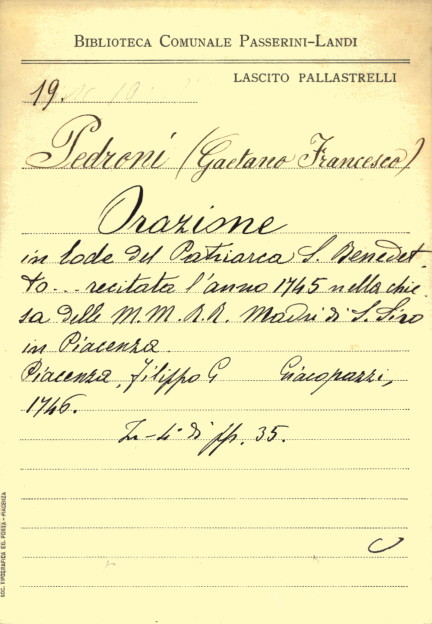 BIBLIOTECA COMUNALE PASSERINI-LANDI
LASCITO PALLASTRELLI
19.
Pedroni (Gaetano Francesco)
Orazione
in lode del Patriarca S. Benedet-
to... recitata l'anno 1745 nella chie-
sa delle M.M. R.R. Madri di S. Siro
in Piacenza.
Piacenza, Filippo G Giacopazzi,
1746.
In-4° di pp. 35.
SOC. TIPOGRAFICA ED. PORTA - PIACENZA